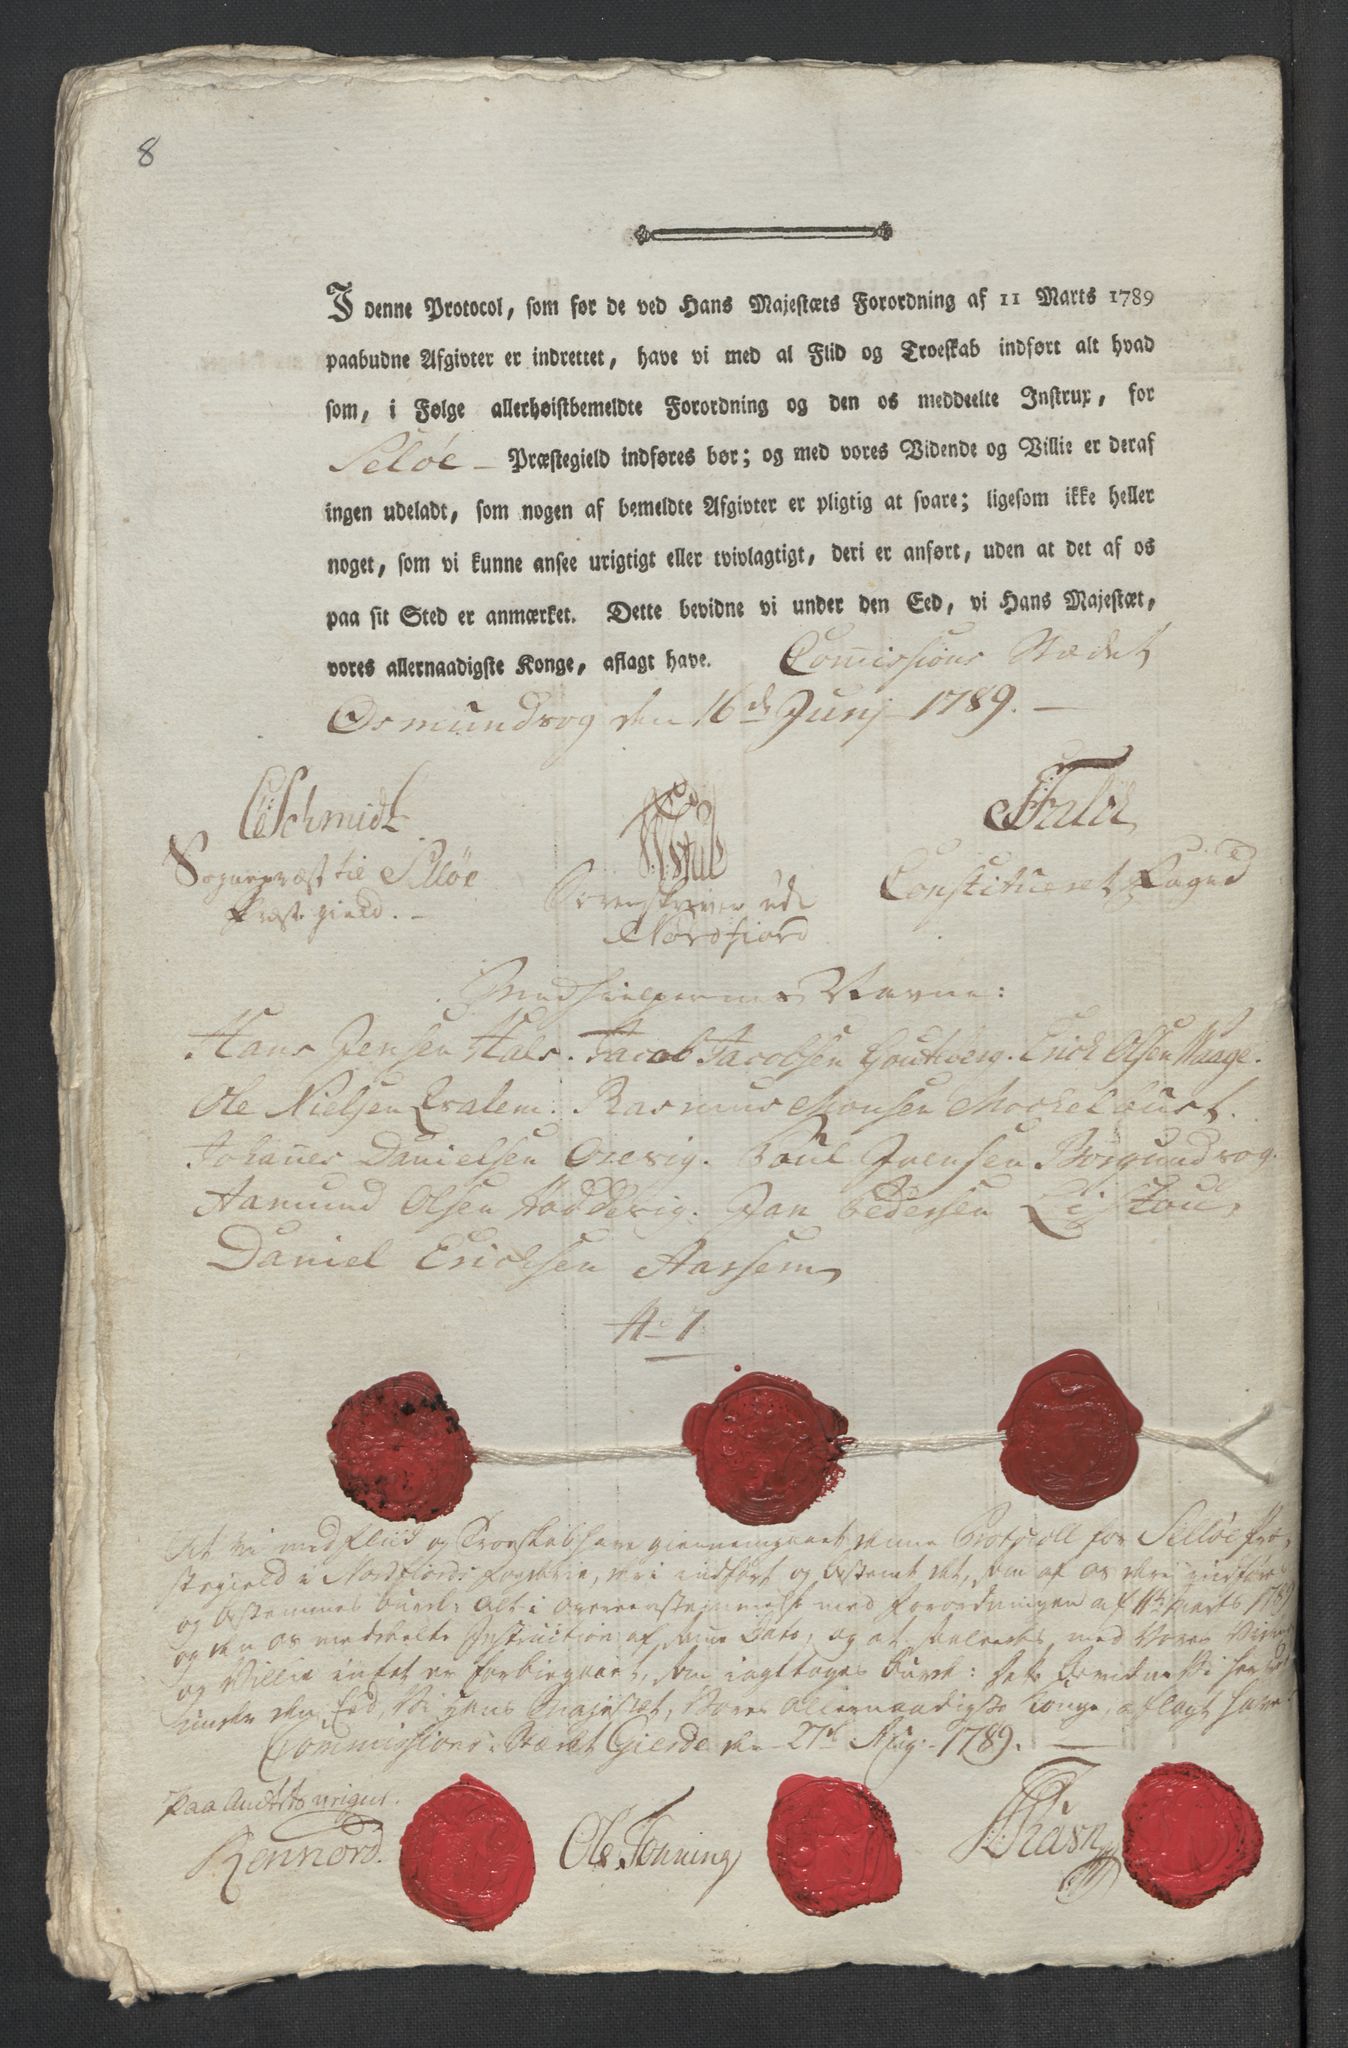 8
I denne Protocol, som før de ved Hans Majestæts Forordning af 11 Marts 1789
paabudne Afgivter er indrettet, have vi med al Flid og Troeskab indført alt hvad
som, i Følge allerhøistbemeldte Forordning og den os meddeelte Instrux, for
Seløe - Præstegield indføres bør; og med vores Vidende og Villie er deraf
ingen udeladt, som nogen af bemeldte Afgivter er pligtig at svare; ligesom ikke heller
noget, som vi kunne ansee urigtigt eller tvivlagtigt, deri er anført, uden at det af os
paa sit Sted er anmærket. Dette bevidne vi under den Eed, vi Hans Majestæt,
vores allernaadigste Konge, aflagt have. Comissions Stædet
Osmundvog den 16de Junj 1789.
Schmidt
Sognepræst til Selløe
Præstegield.
Sorenskriver udi
Nordfiord
Constitueret Foged
Medhielpernes Navne:
Hans Jensen Hals. Jacob Jacobsen Goutberg. Erick Olsen Waage.
Ole Nielsen Qvalem. Rasmus Monsen Mochelbust.
Johannes Danielsen Orevig. Poul Joensen Borgundvog.
Aamund Olsen Hoddevig. Jon Pedersen Listoul
Daniel Ericksen Aarsem
No 7
At vi med Fliid og Troeskab have giennemgaaet denne Protocoll for Selløe Præ-
stegield i Nordfiords Fogderie, deri indført og bestemt det, som af os deri indføres
og bestemmes burde, alt i overeensstemmelse med Forordningen af 11te Marts 1789
og den os meddeelte Instruction af samme Dato, og at saaledes med Vores Vidende
og Villie intet er forbiegaaet, som iagttages burde: dette bevidne Vi herved
under den Eed, Vi Hans Majestæt, Vores Allernaadigste Konge, aflagt have
Commissions-Stædet Gierde den 27de Aug: 1789.
Paa Amtets veigne.
Rennord.
Ole Tonning